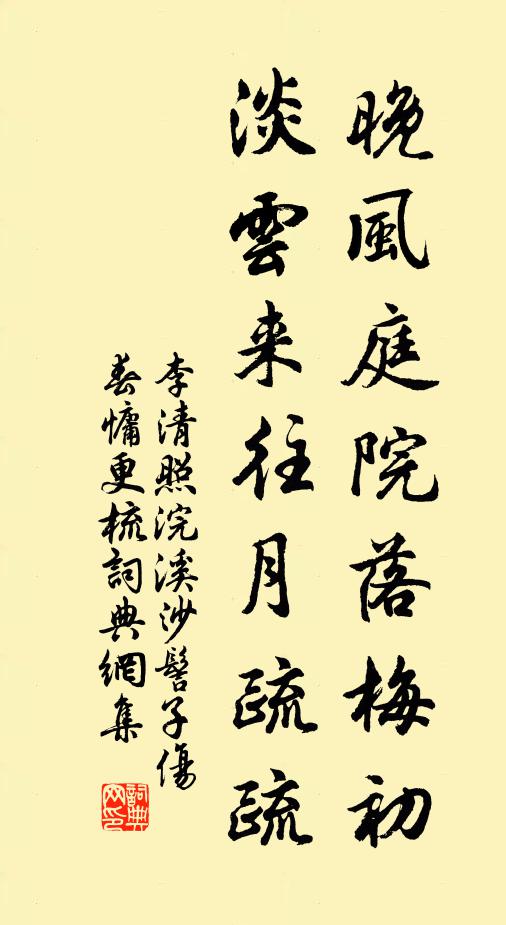 晚風庭院落梅初
淡雲来往月疏疏
李清照浣溪沙髻子傷
春慵更梳詞典網集
詞典
网印